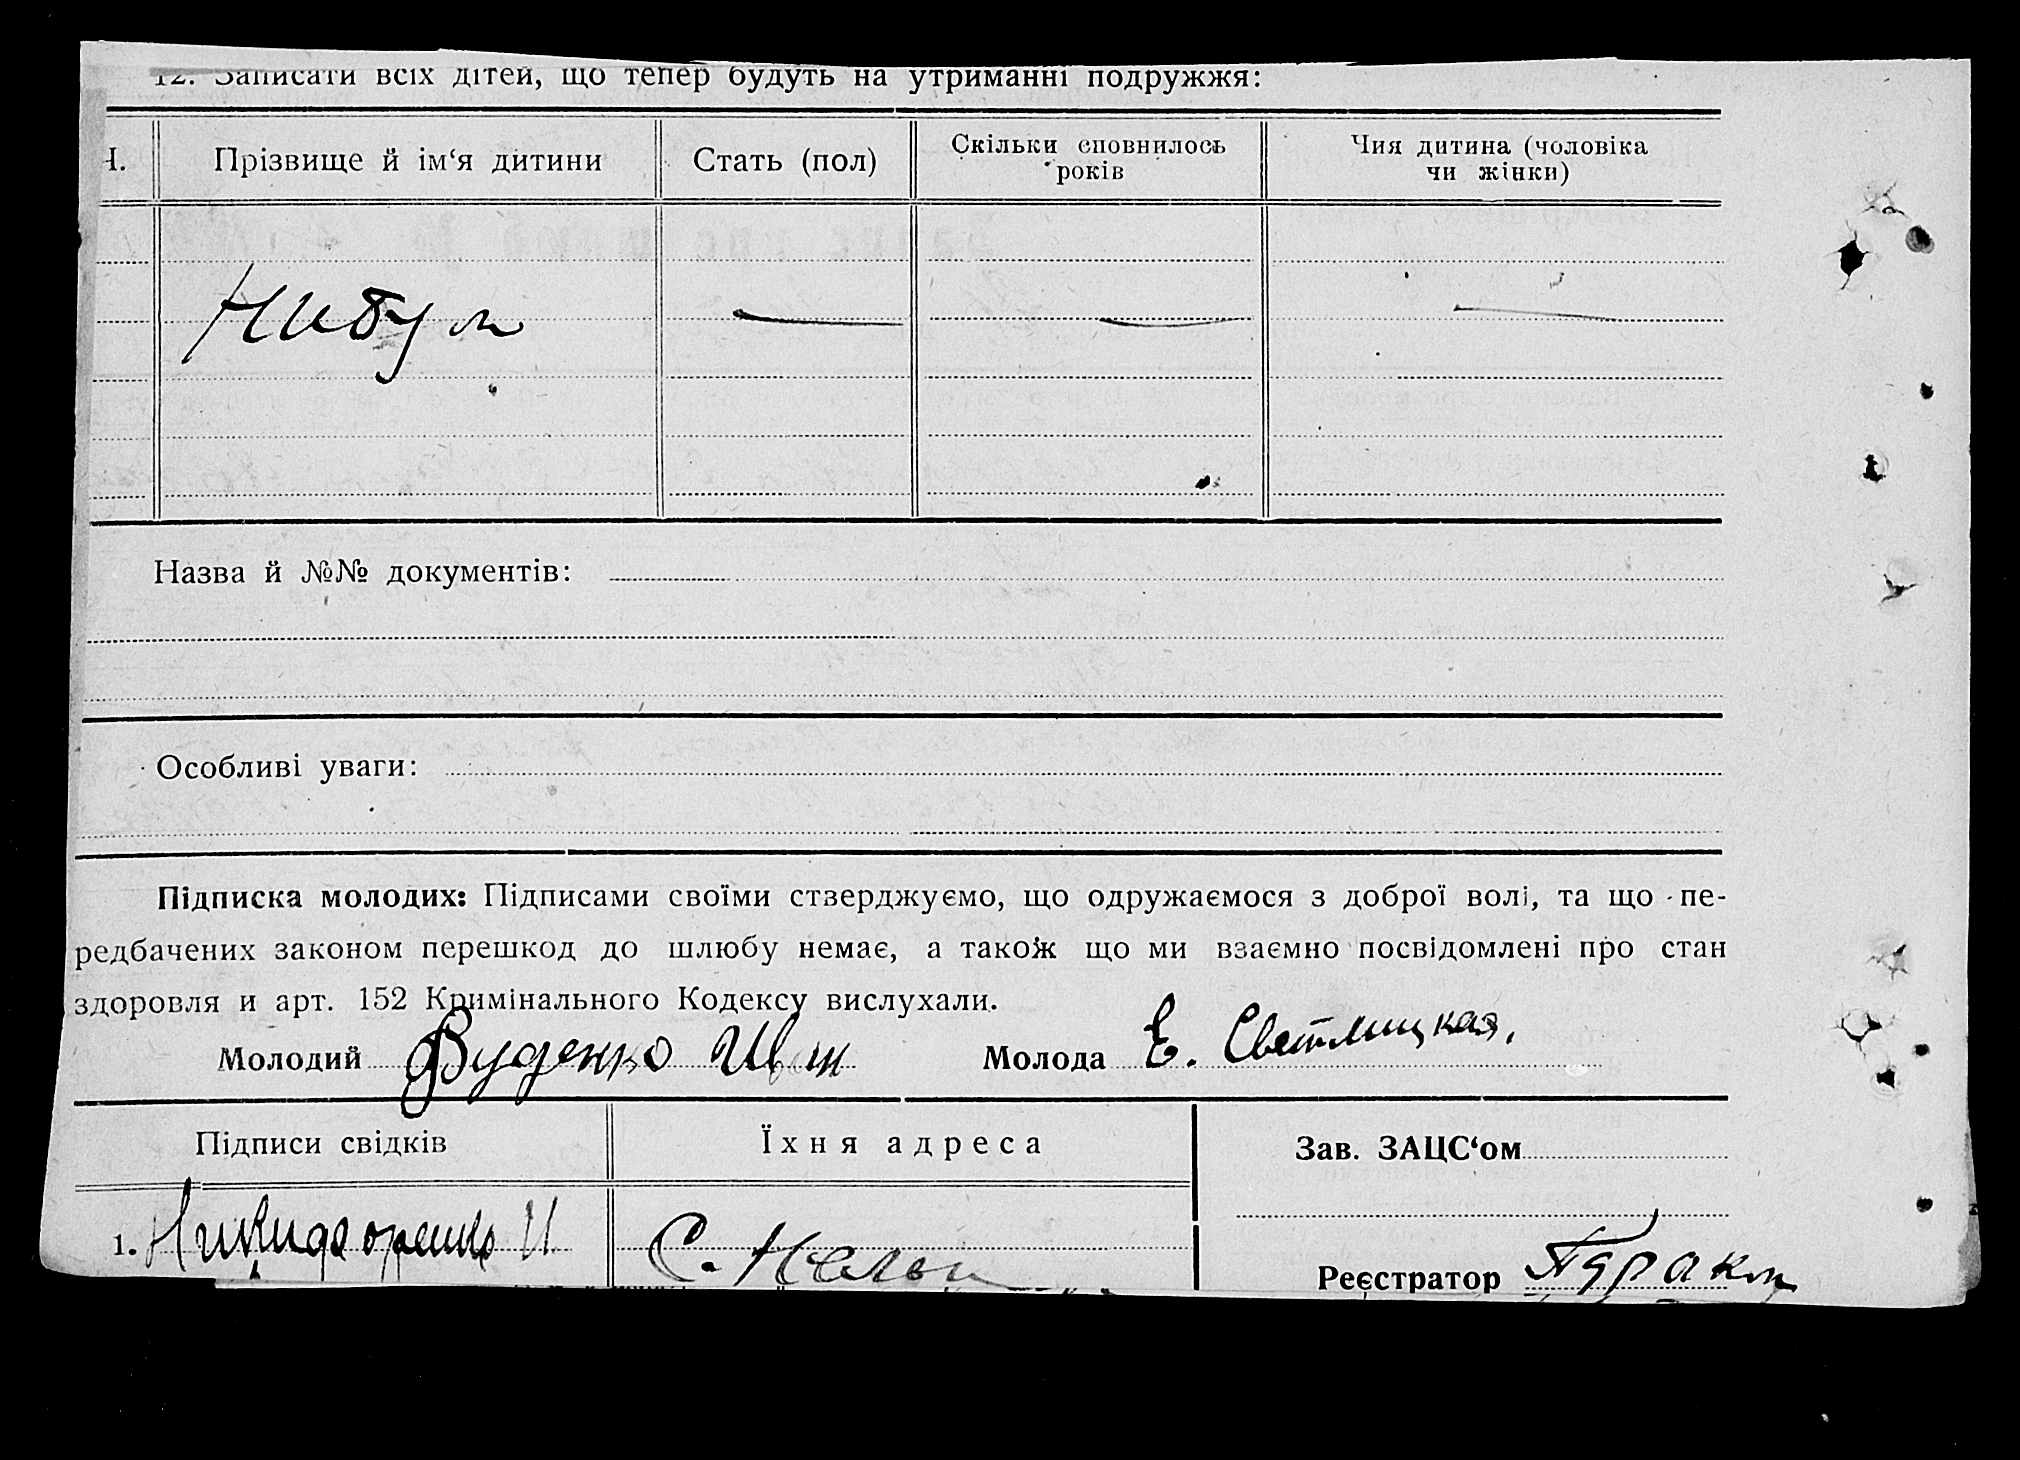 12. Записати всіх дітей, що тепер будуть на утриманні подружжя:
Ч. Прізвище й ім‘я дитини Стать (пол) Скільки сповнилось років Чия дитина (чоловіка чи жінки)
Назва й №№ документів:
Особливі уваги:
Підписка молодих: Підписами своїми стзерджуємо, що одружаємося з доброї волі, та що пе-
редбачених законом перешкод до шлюбу немає, а також що ми взаємно посвідомлені про стан
здоровля и арт. 152 Кримінального Кодексу вислухали.
Молодий Руденко Иван Молода Е. Светлицкая.
Підписи свідків Їхня адреса Зав. ЗАЦС‘ом
1. И С.
Реєстратор